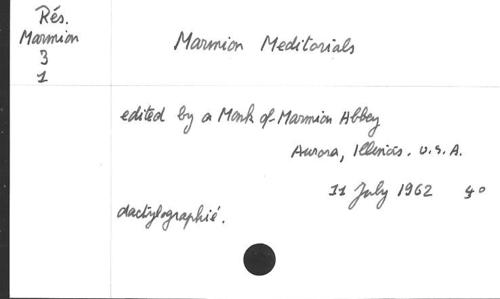 Rés.
Marmion
3
1
Marmion Meditorials
edited by a Monk of Marmion Abbey
Aurora, Illinois. U.S.A.
11 July 1962 4°
dactylographié.